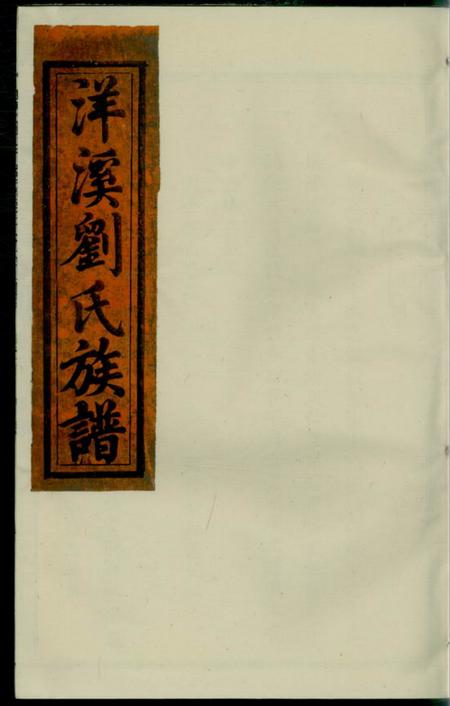 洋溪劉氏族譜